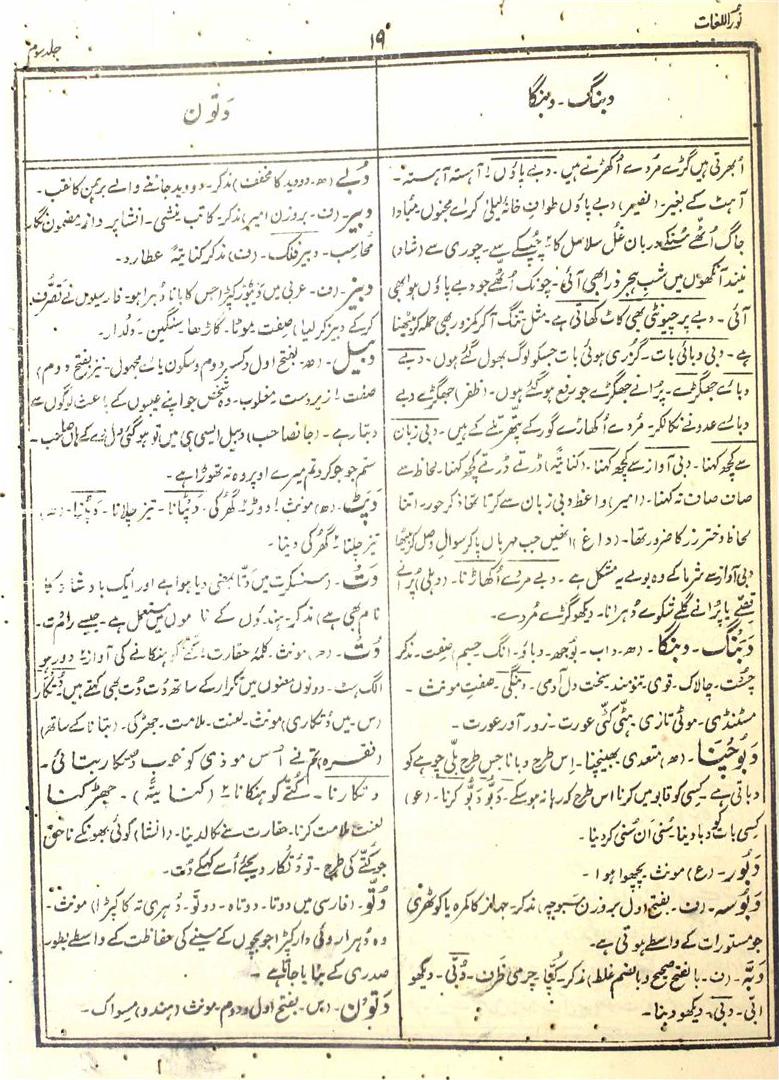 نور اللغات
۱۹
جلد سوم
دبنگ - دبنگا
اُبھرتی ہیں گڑے مُردے اُکھڑتے ہیں۔ دبے پاؤں! آہستہ آہستہ۔
آہٹ کے بغیر۔ (نصیر) دبے پاؤں طوافِ خانۂ لیلیٰ کر اے مجنوں مبادا
جاگ اُٹھے سُنکے دربان غل سلاسل کا ؛ چپکے سے۔ چوری سے (شاد)
نیند آنکھوں میں شبِ ہجر ذرا بھی آئی۔ چونک اُٹھے جو دبے پاؤں ہوا بھی
آئی۔ دبے پر چیونٹی بھی کاٹ کھاتی ہے۔ مثل تنگ آکر کمزور بھی حملہ کر بیٹھتا
ہے۔ دبی دبائی بات۔ گزری ہوئی بات جسکو لوگ بھول گئے ہوں۔ دبے
دبائے جھگڑے۔ پُرانے جھگڑے جو رفع ہو گئے ہوں۔ (ظفر) جھگڑے دبے
دبائے عدو نے نکالکر۔ مُردے اُکھاڑے گور کے پتھر تلے کے ہیں۔ دبی زبان
سے کچھ کہنا۔ دبی آواز سے کچھ کہنا۔ (کنایۃً) ڈرتے ڈرتے کچھ کہنا۔ لحاظ سے
صاف صاف نہ کہنا۔ (امیر) واعظ دبی زبان سے کرتا تھا ذکرِ حور۔ اتنا
لحاظ دخترِ رز کا ضرور تھا۔ (داغ) انھیں جب مہرباں پاکر سوالِ وصل کر بیٹھا
دبی آواز سے شرما کے وہ بولے یہ مشکل ہے۔ دبے مردے اُکھاڑنا۔ (دہلی) پُرانے
قصّے یا پُرانے گلے شکوے دُہرانا۔ دیکھو گڑے مُردے۔
دَبَنگ۔ دبنگا۔ (ھ۔ داب۔ بوجھ۔ دباؤ۔ انگ جسیم) صفت۔ مذکر
چُست۔ چالاک۔ قوی۔ تنومند۔ سخت دل آدمی۔ دبنگی۔ صفتِ مونث۔
مسٹنڈی۔ موٹی تازی۔ ہٹی کٹی عورت۔ زور آور عورت۔
دَبوچنا۔ (ھ) متعدی۔ بھینچنا۔ اِس طرح دبانا جس طرح بلّی چوہے کو
دباتی ہے۔ کسی کو قابو میں کرنا اس طرح کہ رہا نہ ہو سکے۔ دَبَو دَبَو کرنا۔ (عو)
کسی بات کو دبا دینا۔ سُنی اَن سُنی کر دینا۔
دَبور۔ (ع) مونث۔ پچھوا ہوا۔
دَبوسہ۔ (ف۔ بفتح اول بروزن سبوچہ) مذکر۔ جہاز کا کمرہ یا کوٹھری
جو مستورات کے واسطے ہوتی ہے۔
دَبّہ۔ (ف۔ بالفتح صحیح و بالضم غلط) مذکر۔ کُپّا۔ چرمی ظرف۔ دُبّی۔ دیکھو
ابّی۔ دبی۔ دیکھو دبنا۔
دتون
دُبے (ھ۔ دووید کا مخفف) مذکر۔ دو وید جاننے والے برہمن کا لقب۔
دبیر۔ (ف۔ بروزن امیر) مذکر۔ کاتب۔ منشی۔ انشا پرداز۔ مضمون نگار
محاسب۔ دبیرِ فلک۔ (ف) مذکر۔ کنایۃً عطارد۔
دبیز۔ (ف۔ عربی میں دیثور کپڑا جس کا بانا دُہرا ہو۔ فارسیوں نے تصرّف
کر کے دبیز کر لیا) صفت۔ موٹا۔ گاڑھا۔ سنگین۔ دلدار۔
دبیل۔ (ھ۔ بفتح اول و کسرِ دوم و سکون یائے مجہول۔ نیز بفتح دوم)
صفت! زبردست۔ مغلوب۔ وہ شخص جو اپنے عیبوں کے باعث لوگوں سے
دبتا ہے۔ (جانصاحب) دبیل ایسی ہی میں تو ہو گئی ہوں صاحب۔
ستم جو جو کرو تم میرے اوپر وہ نہ تھوڑا ہے۔
دَپَٹ۔ (ھ) مونث! دوڑ ؛ گھُرکی۔ دَپٹانا۔ تیز چلانا۔ دَپَٹنا۔ (ھ)
تیز چلنا ؛ گھُرکی دینا۔
دَت۔ (سنسکرت میں دَتّا بمعنی دیا ہوا ہے اور ایک بادشاہ کا
نام بھی ہے) مذکر۔ ہندوؤں کے ناموں میں مستعمل ہے۔ جیسے رام دت۔
دُت۔ (ھ) مونث۔ کلمۂ حقارت ؛ کتّے کو ہنکانے کی آواز ؛ دور ہو
الگ ہٹ۔ دونوں معنوں میں تکرار کے ساتھ دُت دُت بھی کہتے ہیں۔ دُتکار
(س۔ میں دُتکاری) مونث۔ لعنت۔ ملامت۔ جھڑکی۔ (بتانا کے ساتھ)
(فقرہ) تم نے اُس موذی کو خوب دتکار بتائی۔
دتکارنا۔ کُتّے کو ہنکانا ؛ (کنایۃً)۔ جھڑکنا
لعنت ملامت کرنا۔ حقارت سے نکالدینا۔ (انشا) گوئی بھونکے ناحق
جو کُتّے کی طرح۔ تو دُتکار دیجئے اُسے کہکے دُت۔
دُتَّو۔ (فارسی میں دوتا۔ دوتاہ۔ دوتو۔ دُہری تہ کا کپڑا) مونث۔
وہ دُہرا روئی دار کپڑا جو بچوں کے سینے کی حفاظت کے واسطے بطور
صدری کے پہنایا جاتا ہے۔
دَتون۔ (س۔ بفتح اول و دوم۔ مونث (ہندو) مسواک۔